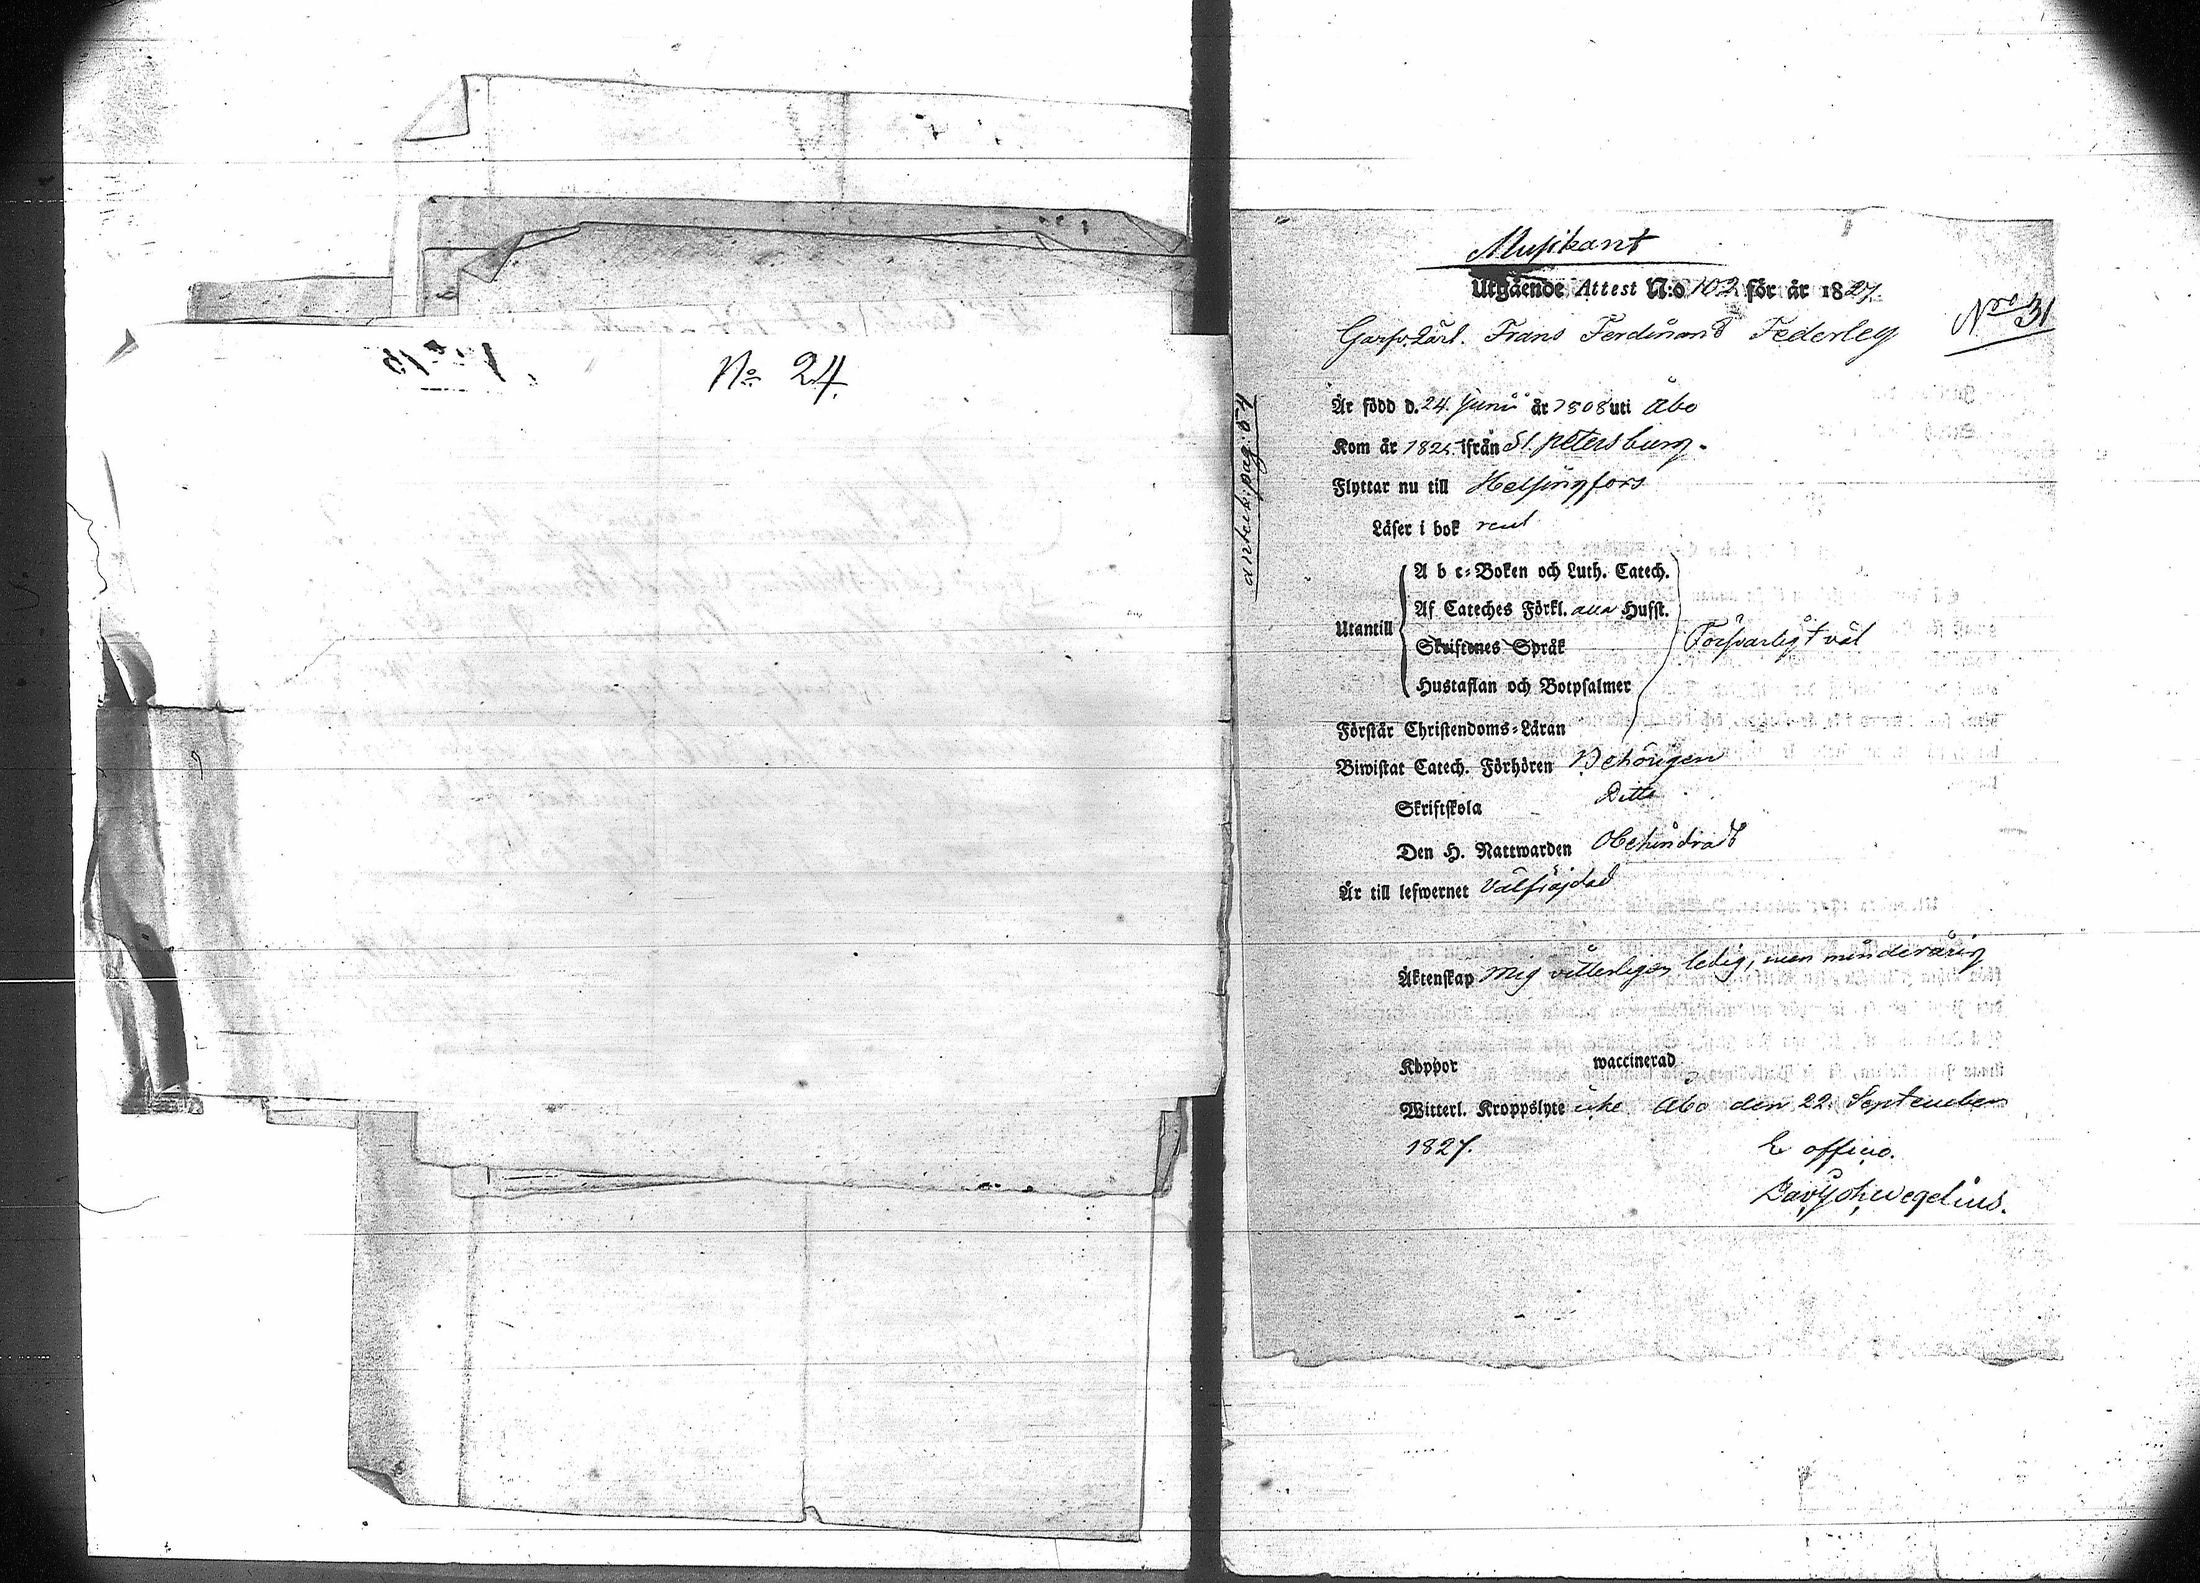 No 24.
Musikant
Utgående Attest N:o 102 för år 1827.
Nro 31
Garfv. Lärl. Frans Ferdinand Federley
Är född d. 24. Junii år 1808 uti Åbo
Kom år 1825 ifrån St. Petersburg.
Flyttar nu till Helsingfors
Läser i bok rent
A b c-Boken och Luth. Catech.
Af Cateches Förkl. alla Husft.
Utantill
Skriftenes Språk
Försvarligt väl
Hustaflan och Botpsalmer
Förstår Christendoms-Läran
Biwistat Catech. Förhören Behörigen
Skriftskola Ditto
Den H. Nattwarden Obehindrad
Är till lefwernet Välfräjdad
Äktenskap Mig vitterligen ledig, men minderårig
Koppor waccinerad
Witterl. Kroppslyte icke Åbo den 22. September
1827.
E officio.
Dav. Joh. Wegelius.